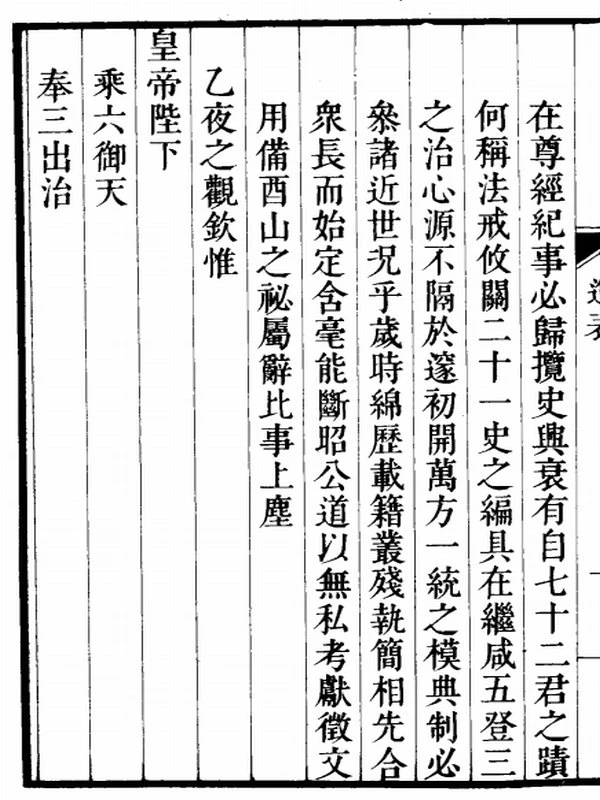 在尊經紀事必歸攬史興衰有自七十二君之蹟
何稱法戒攸關二十一史之編具在繼咸五登三
之治心源不隔於邃初開萬方一統之模典制必
叅諸近世況乎歲時綿歷載籍叢殘執簡相先合
衆長而始定含毫能斷昭公道以無私考獻徵文
用備酉山之祕屬辭比事上塵
乙夜之觀欽惟
皇帝陛下
乘六御天
奉三出治